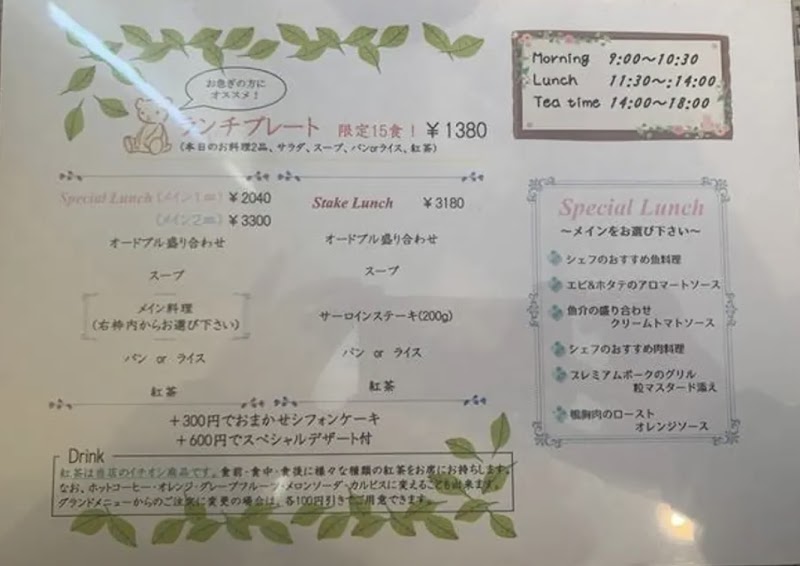 お急ぎの方に
オススメ！
ランチプレート 限定15食！ ￥1380
(本日のお料理2品、サラダ、スープ、パンorライス、紅茶)
Morning 9:00～10:30
Lunch 11:30～:14:00
Tea time 14:00～18:00
Special Lunch (メイン1皿) ￥2040
(メイン2皿) ￥3300
オードブル盛り合わせ
スープ
メイン料理
(右枠内からお選び下さい)
パン or ライス
紅茶
Stake Lunch ￥3180
オードブル盛り合わせ
スープ
サーロインステーキ(200g)
パン or ライス
紅茶
＋300円でおまかせシフォンケーキ
＋600円でスペシャルデザート付
Special Lunch
～メインをお選び下さい～
シェフのおすすめ魚料理
エビ&ホタテのアロマートソース
魚介の盛り合わせ
クリームトマトソース
シェフのおすすめ肉料理
プレミアムポークのグリル
粒マスタード添え
鴨胸肉のロースト
オレンジソース
Drink
紅茶は当店のイチオシ商品です。食前・食中・食後に様々な種類の紅茶をお席にお持ちします。
なお、ホットコーヒー・オレンジ・グレープフルーツ・メロンソーダ・カルピスに変えることも出来ます。
グランドメニューからのご注文に変更の場合は、各100円引きでご用意できます。